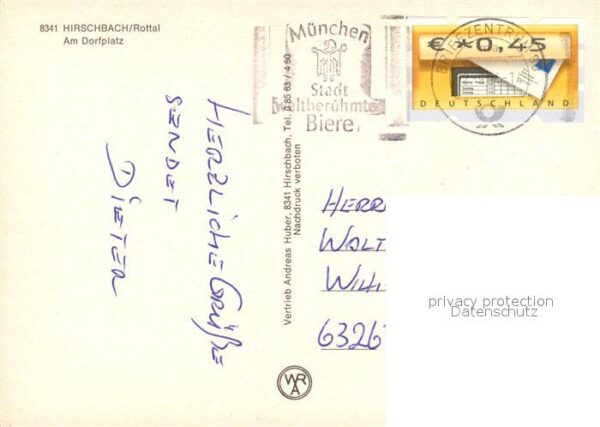 8341 HIRSCHBACH/Rottal
Am Dorfplatz
München
Stadt
Weltberühmter
Biere
€*0,45
BRIEFZENTRUM
DEUTSCHLAND
HERZLICHE GRÜßE
SENDET
DIETER
Vertrieb Andreas Huber, 8341 Hirschbach, Tel. 0 85 63 / 4 60
Nachdruck verboten
HERR
WALT
WILH
6326
WRA
privacy protection
Datenschutz